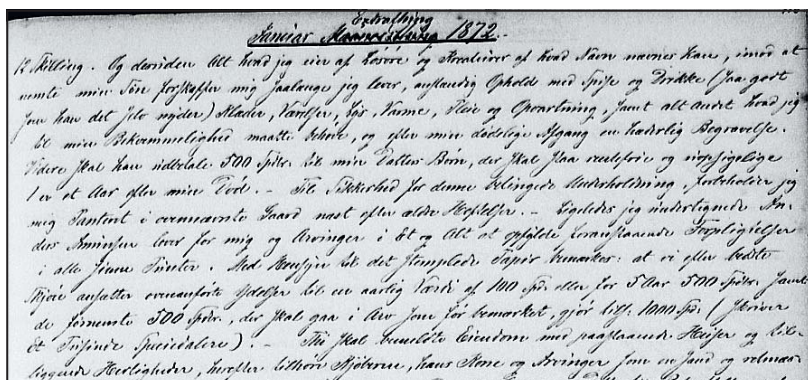 Extratthing
Januar 1872.
12 Skilling. Og desuden Alt hvad jeg eier af Løsøre og Kreaturer af hvad Navn nævnes kan, imod at
nævnte min Søn forskaffer mig saalænge jeg lever, anstændig Ophold med Spise og Drikke (saa godt
som han det selv nyder) Klæder, Værelser, Lys, Varme, Pleie og Opvartning, samt alt andet hvad jeg
til min Bekvemmelighed maatte behøve, og efter min dødelige Afgang en hæderlig Begravelse.
Videre skal han udbetale 500 Spdr. til min Datters Børn, der skal staa rentefrie og uopsigelige
1 er et Aar efter min Død. — Til Sikkerhed for denne betingede Underholdning, forbeholder jeg
mig Panteret i ovennævnte Gaard næst efter ældre Heftelser. — Ligeledes jeg undertegnede An-
ders lover for mig og Arvinger i Et og Alt at opfylde foranstaaende Forpligtelser
i alle sine Punkter. Med Hensyn til det stemplede Papir bemærkes: at vi efter bedste
Skjøn ansætter ovenanførte Ydelser til en aarlig Værdi af 100 Spd. eller for 5 Aar 500 Spdr. samt
de fornævnte 500 Spdr., der skal gaa i Arv som før bemærket, gjør tils. 1000 Spd. (skriver
Et Tusinde Speciedaler). — Thi skal bemeldte Eiendom med paastaaende Huser og til-
liggende Herligheder, herefter tilhøre Kjøberen, hans Kone og Arvinger som en sand og velmær-